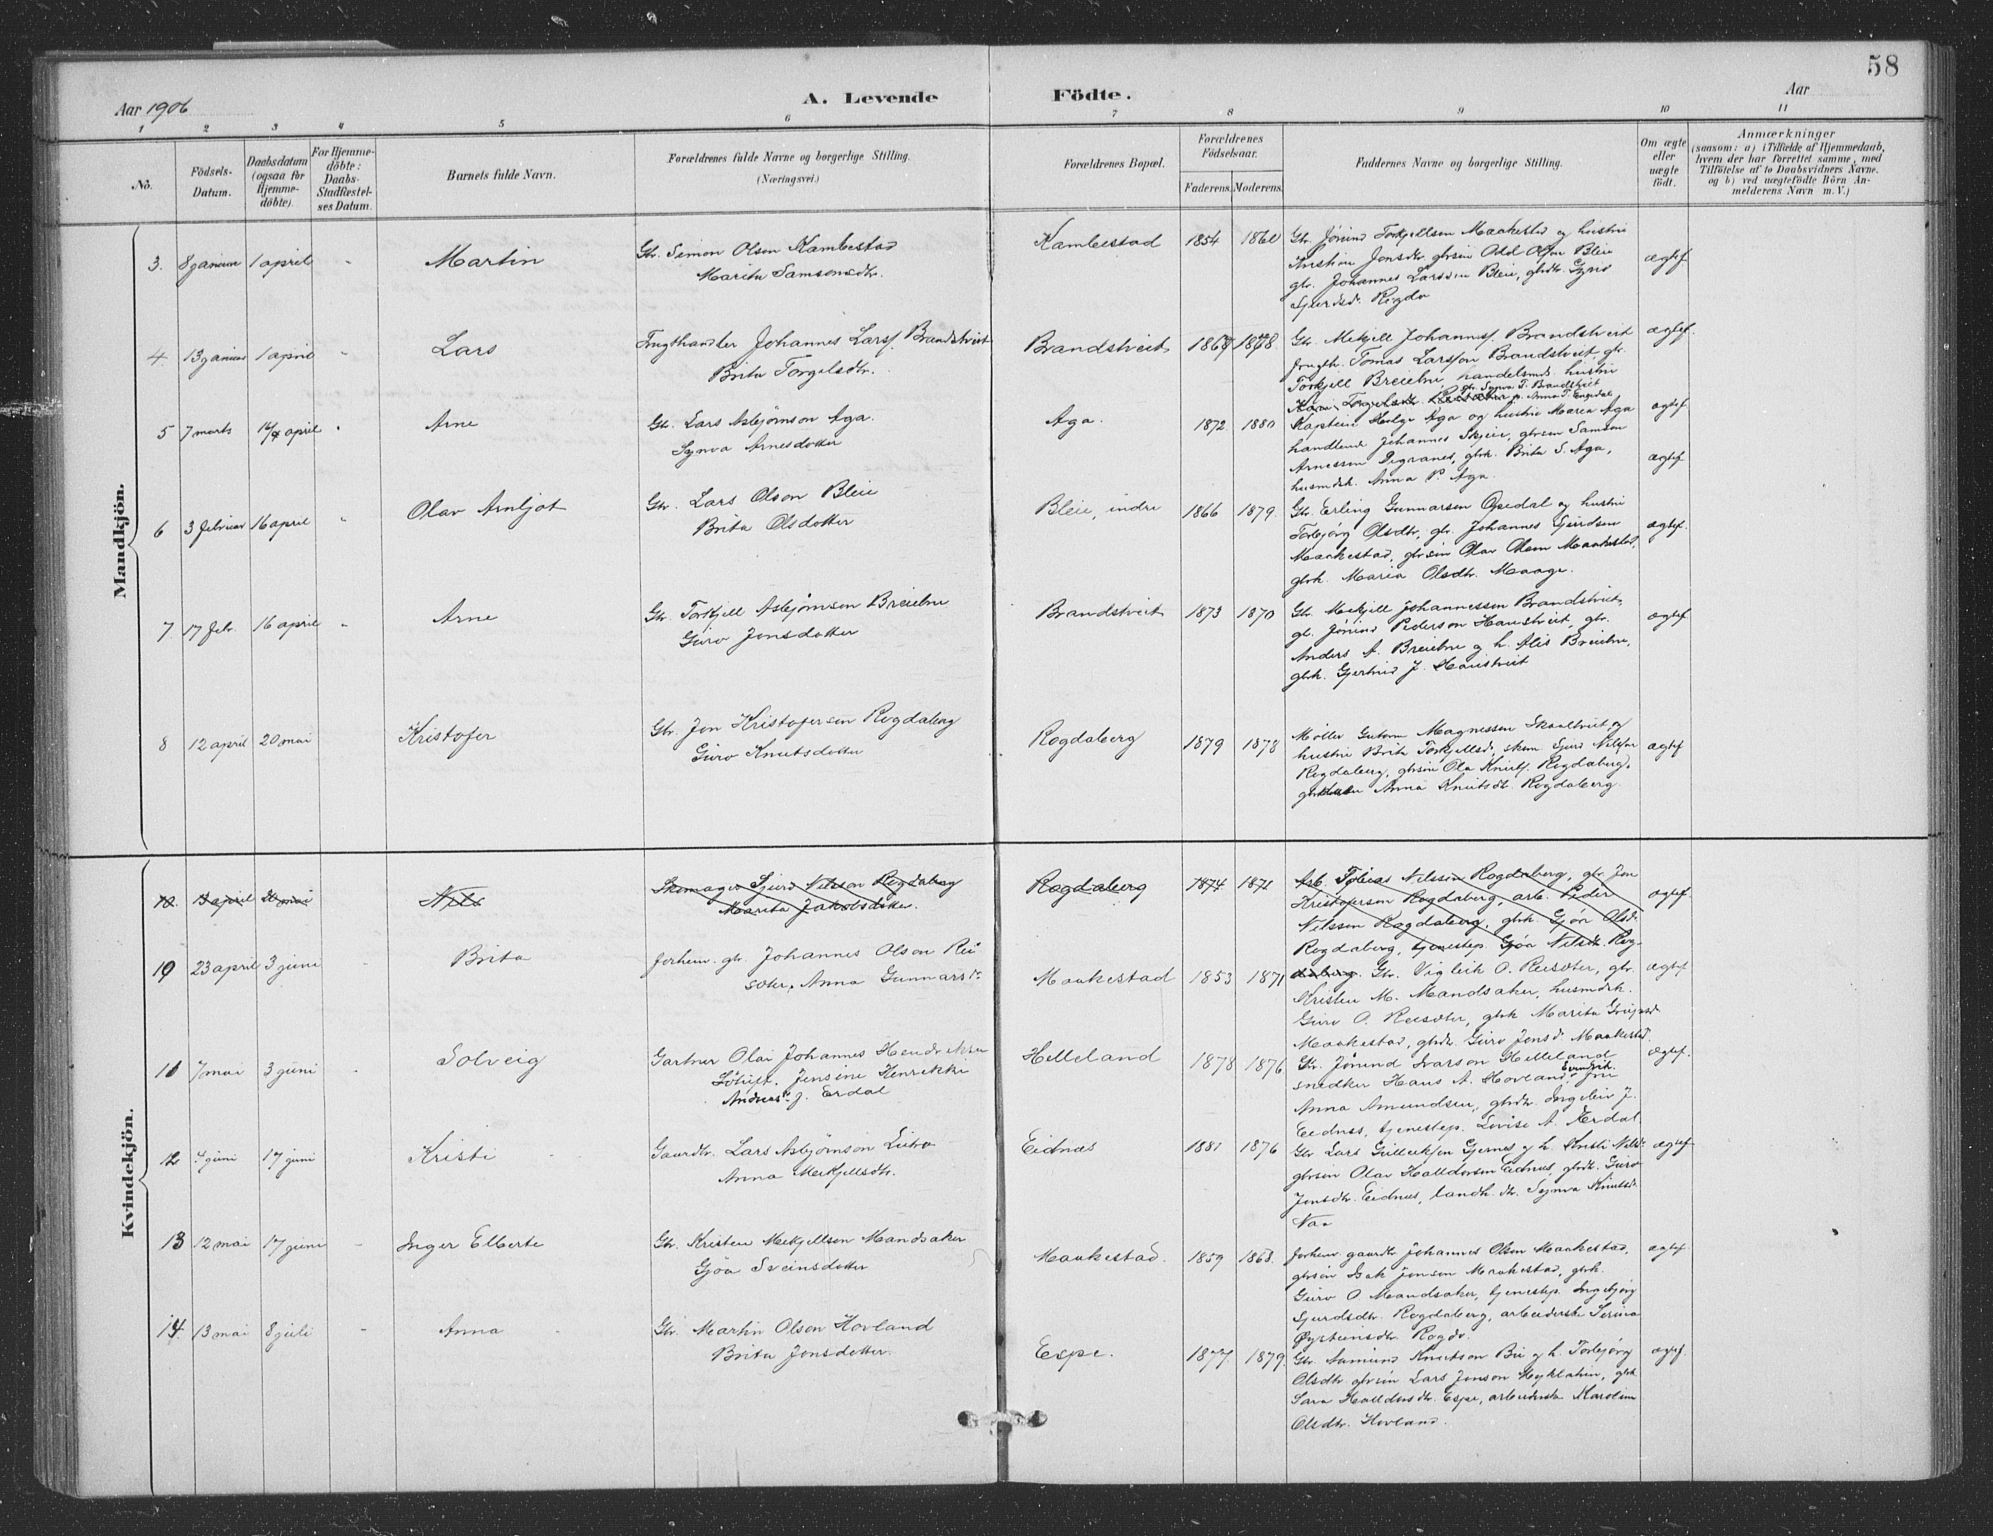 58
Aar 1906
A. Levende
Födte.
Aar
1 2 3 4 5 6 7 8 9 10 11
No.
Födsels-
Datum.
Daabsdatum
(ogsaa for
Hjemme-
döbte).
For Hjemme-
döbte:
Daabs-
Stadfæstel-
ses Datum.
Barnets fulde Navn.
Forældrenes fulde Navne og borgerlige Stilling.
(Næringsvei.)
Forældrenes Bopæl.
Forældrenes
Födselsaar.
Faderens. Moderens.
Faddernes Navne og borgerlige Stilling.
Om ægte
eller
uægte
födt.
Anmærkninger
(saasom: a) i Tilfælde af Hjemmedaab,
hvem der har forrettet samme, med
Tilföielse af to Daabsvidners Navne.
og b) ved uægtefödte Börn An-
melderens Navn m. V.)
Mandkjön.
3. 8 januar 1 april Martin
Gbr. Simon Olsen Kambestad
Marita Samsonsdtr.
Kambestad 1854 1860
Gbr. Jörund Torkjellsen Maakestad og hustru
Kristine Jonsdtr. gbrsön Odd Olsen Bleie
gbr. Johannes Larssen Bleie, gbrdtr. Gyro
Sjursd. Rogde
ægtef.
4. 13 januar 1 april Lars
Frugthandler Johannes Larsf. Brandstveit
Brita Torgilsdtr.
Brandstveit 1868 1878.
Gbr. Mikjell Johannesf. Brandstveit
frugth. Tomas Larsson Brandstveit, gbr.
Torkjell Breiebne, handelsmds. hustru
ægtef.
5 7 marts april Arne
Gbr. Lars Asbjörnson Aga.
Synva Arnesdotter
Aga. 1872 1880
Kaptein Helge Aga og hustru Maria Aga
handlende Johannes Skjeie, gbrsön Samson
Arnesson Digranes, gbrk. Brita S. Aga,
husmdk. Anna P. Aga.
ægtef.
ægtef.
6 3 februar 16 april Olav Arnljot
Gbr. Lars Olson Bleie
Brita Olsdotter
Bleie, indre 1866 1879.
Gbr. Erling Gunnarsen Opedal og hustru
Torbjörg Olsdtr, gbr. Johannes Sjurdsen
Maakestad, gbrsön Olav Olsen Maakestad,
gbrk. Maria Olsdtr. Maage.
ægtef.
7. 17 feb. 16 april Arne
Gbr. Torkjell Asbjörnsen Breiebne
Guro Jonsdotter
Brandstveit 1873 1870
Gbr. Mikjell Johannessen Brandstveit,
gbr. Jörund Pederson Haustveit, gbr.
Anders A. Breiebne og h. Alis Breiebne,
gbrk. Gjertrud J. Haustveit
ægtef.
8 12 april 20 mai Kristofer
Gbr. Jon Kristofersen Rogdaberg
Guro Knutsdotter
Rogdaberg 1879 1878
Möller Gutorm Magnessen Skaaltveit og
hustru Brita Torkjellsd, skom. Sjurd Nilsson
Rogdaberg, gbrsön Ola Knutf. Rogdaberg,
Anna Knutsdtr. Rogdaberg.
ægtef
Kvindekjön.
10. 13 april 20 mai Nils
Skomager Sjurd Nilsson Rogdaberg
Marita Jakobsdotter.
Rogdaberg 1874 1871
Arb. Tobias Nilssen Rogdaberg, gbr Jon
Kristofersen Rogdaberg, arb. Peder
Nilssen Rogdaberg, gbrk. Gjöa Olsd.
Rogdaberg, tjenestep. Gjöa Nilsdtr. Rog-
daberg.
ægtef.
10 23 april 3 juni Brita
forhenv. gbr. Johannes Olson Rei
sæter, Anna Gunnarsdr.
Maakestad 1853 1871
Gbr. Vigleik O. Reisæter, gbr.
Kristen M. Mandsaker, husmdk.
Guro O. Reisæter, gbrk Marita
Maakestad, gbrdtr. Guro Jonsd. Maakestad.
ægtef
11 7 mai 3 juni Solveig
Gartner Olai Johannes Hendriksen
Jensine Henrikke
Andreas J. Erdal
Helleland 1878 1876
Gbr. Jörund Ivarson Helleland
snedker Hans A. Hovland, fru
Anna Amundsen, gbrdtr. Ingeleiv J.
Eidnes, tjenestep. Lovise A. Erdal.
ægtef.
12 4 juni 17 juni Kristi
Gaardbr. Lars Asbjörnson Lutro
Anna Mikjellsdtr.
Eidnæs 1881 1876
Gbr Lars Gulleiksen Gjernes og h. Kristi Nilsdr.
gbrsön Olav Halldorsen Eidnes, gbrdtr. Guro
Jonsdtr. Eidnes, landh. dtr. Synva Knutsd.
Naa
ægtef
13 12 mai 17 juni Inger Elberte
Gbr. Kristen Mikjellson Mandsaker
Gjöa Sveinsdotter
Maakestad. 1859 1863.
forhenv gaardbr Johannes Olson Maakestad,
gbrsön Isak Jonsen Maakestad, gbrk.
Guro O Mandsaker, tjenestep. Ingebjörg
Sjurdsdtr. Rogdaberg, arbeiderske Serina
Öysteinsdtr. Rogde.
ægtef.
14. 13 mai 8 juli Anna
Gbr. Martin Olson Hovland
Brita Jonsdotter.
Espe. 1877 1879.
Gbr. Aamund Knutson Bu og h. Torbjörg
Olsdtr. gbrsön Lars Jonson Myklatun, gbrk
Sara Halldorsdtr. Espe, arbeiderske Karoline
Olsdtr. Hovland.
ægtef.